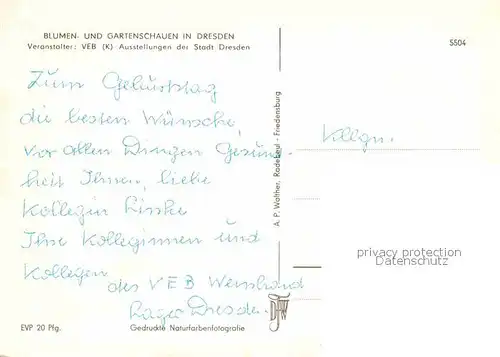 BLUMEN- UND GARTENSCHAUEN IN DRESDEN
Veranstalter: VEB (K) Ausstellungen der Stadt Dresden
5504
Zum Geburtstag
die besten Wünsche,
vor allen Dingen Gesund-
heit Ihnen, liebe
Kollegin Linke
Ihre Kolleginnen und
Kollegen
des VEB Weinbrand
Lager Dresden.
Kollgn.
A. P. Walther, Radebeul - Friedensburg
privacy protection
Datenschutz
EVP 20 Pfg.
Gedruckte Naturfarbenfotografie